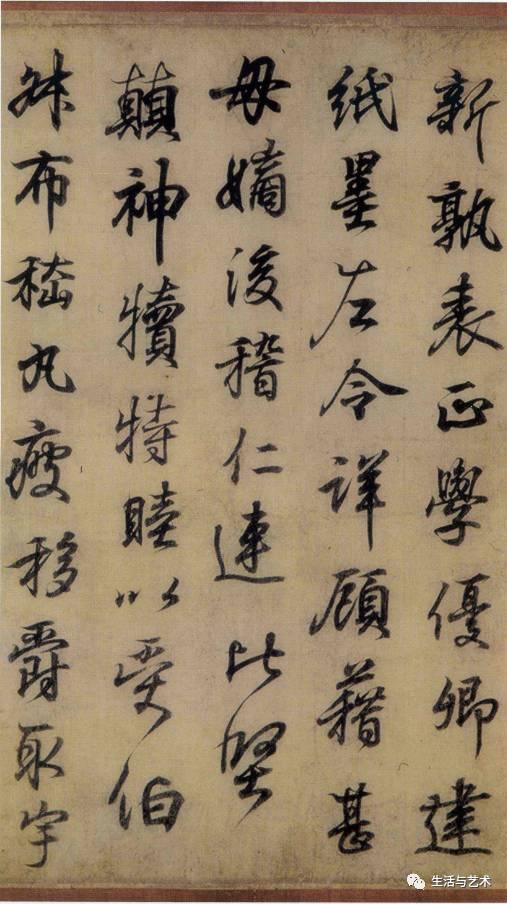 新孰表正學優卿建
紙墨左令詳顧藉甚
母嫡後稽仁連比堅
顛神犢特睦以受伯
叔布嵇丸疲移爵取宇
生活与艺术